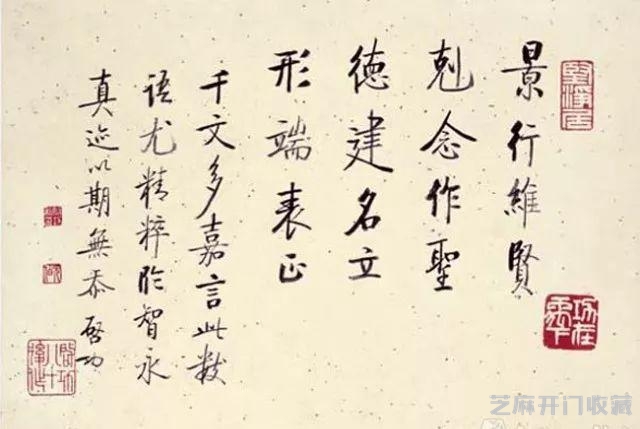 景行維賢
剋念作聖
德建名立
形端表正
千文多嘉言此數
語尤精粹臨智永
真迹以期無忝 啓功
功在禹下
芝麻开门收藏